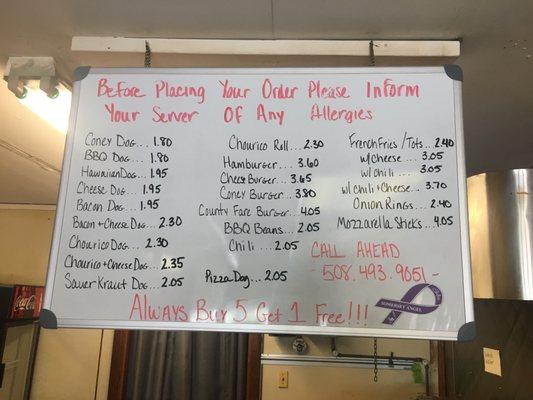 Before Placing Your Order Please Inform
Your Server Of Any Allergies
Coney Dog... 1.80
BBQ Dog... 1.80
Hawaiian Dog... 1.95
Cheese Dog... 1.95
Bacon Dog... 1.95
Bacon + Cheese Dog... 2.30
Chourico Dog... 2.30
Chourico + Cheese Dog... 2.35
Sauer Kraut Dog... 2.05
Chourico Roll... 2.30
Hamburger... 3.60
Cheese Burger... 3.65
Coney Burger... 3.80
County Fare Burger... 4.05
BBQ Beans... 2.05
Chili... 2.05
Pizza Dog... 2.05
French Fries / Tots... 2.40
w/ cheese... 3.05
w/ chili... 3.05
w/ chili + cheese... 3.70
Onion Rings... 2.40
Mozzarella Sticks... 4.05
CALL AHEAD
- 508.493.9051 -
Always Buy 5 Get 1 Free!!!
SOMERSET ANGEL
Coca-Cola